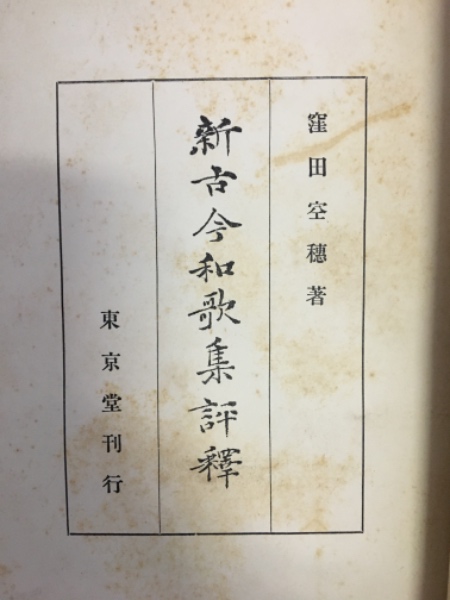 窪田空穂著
新古今和歌集評釋
東京堂刊行